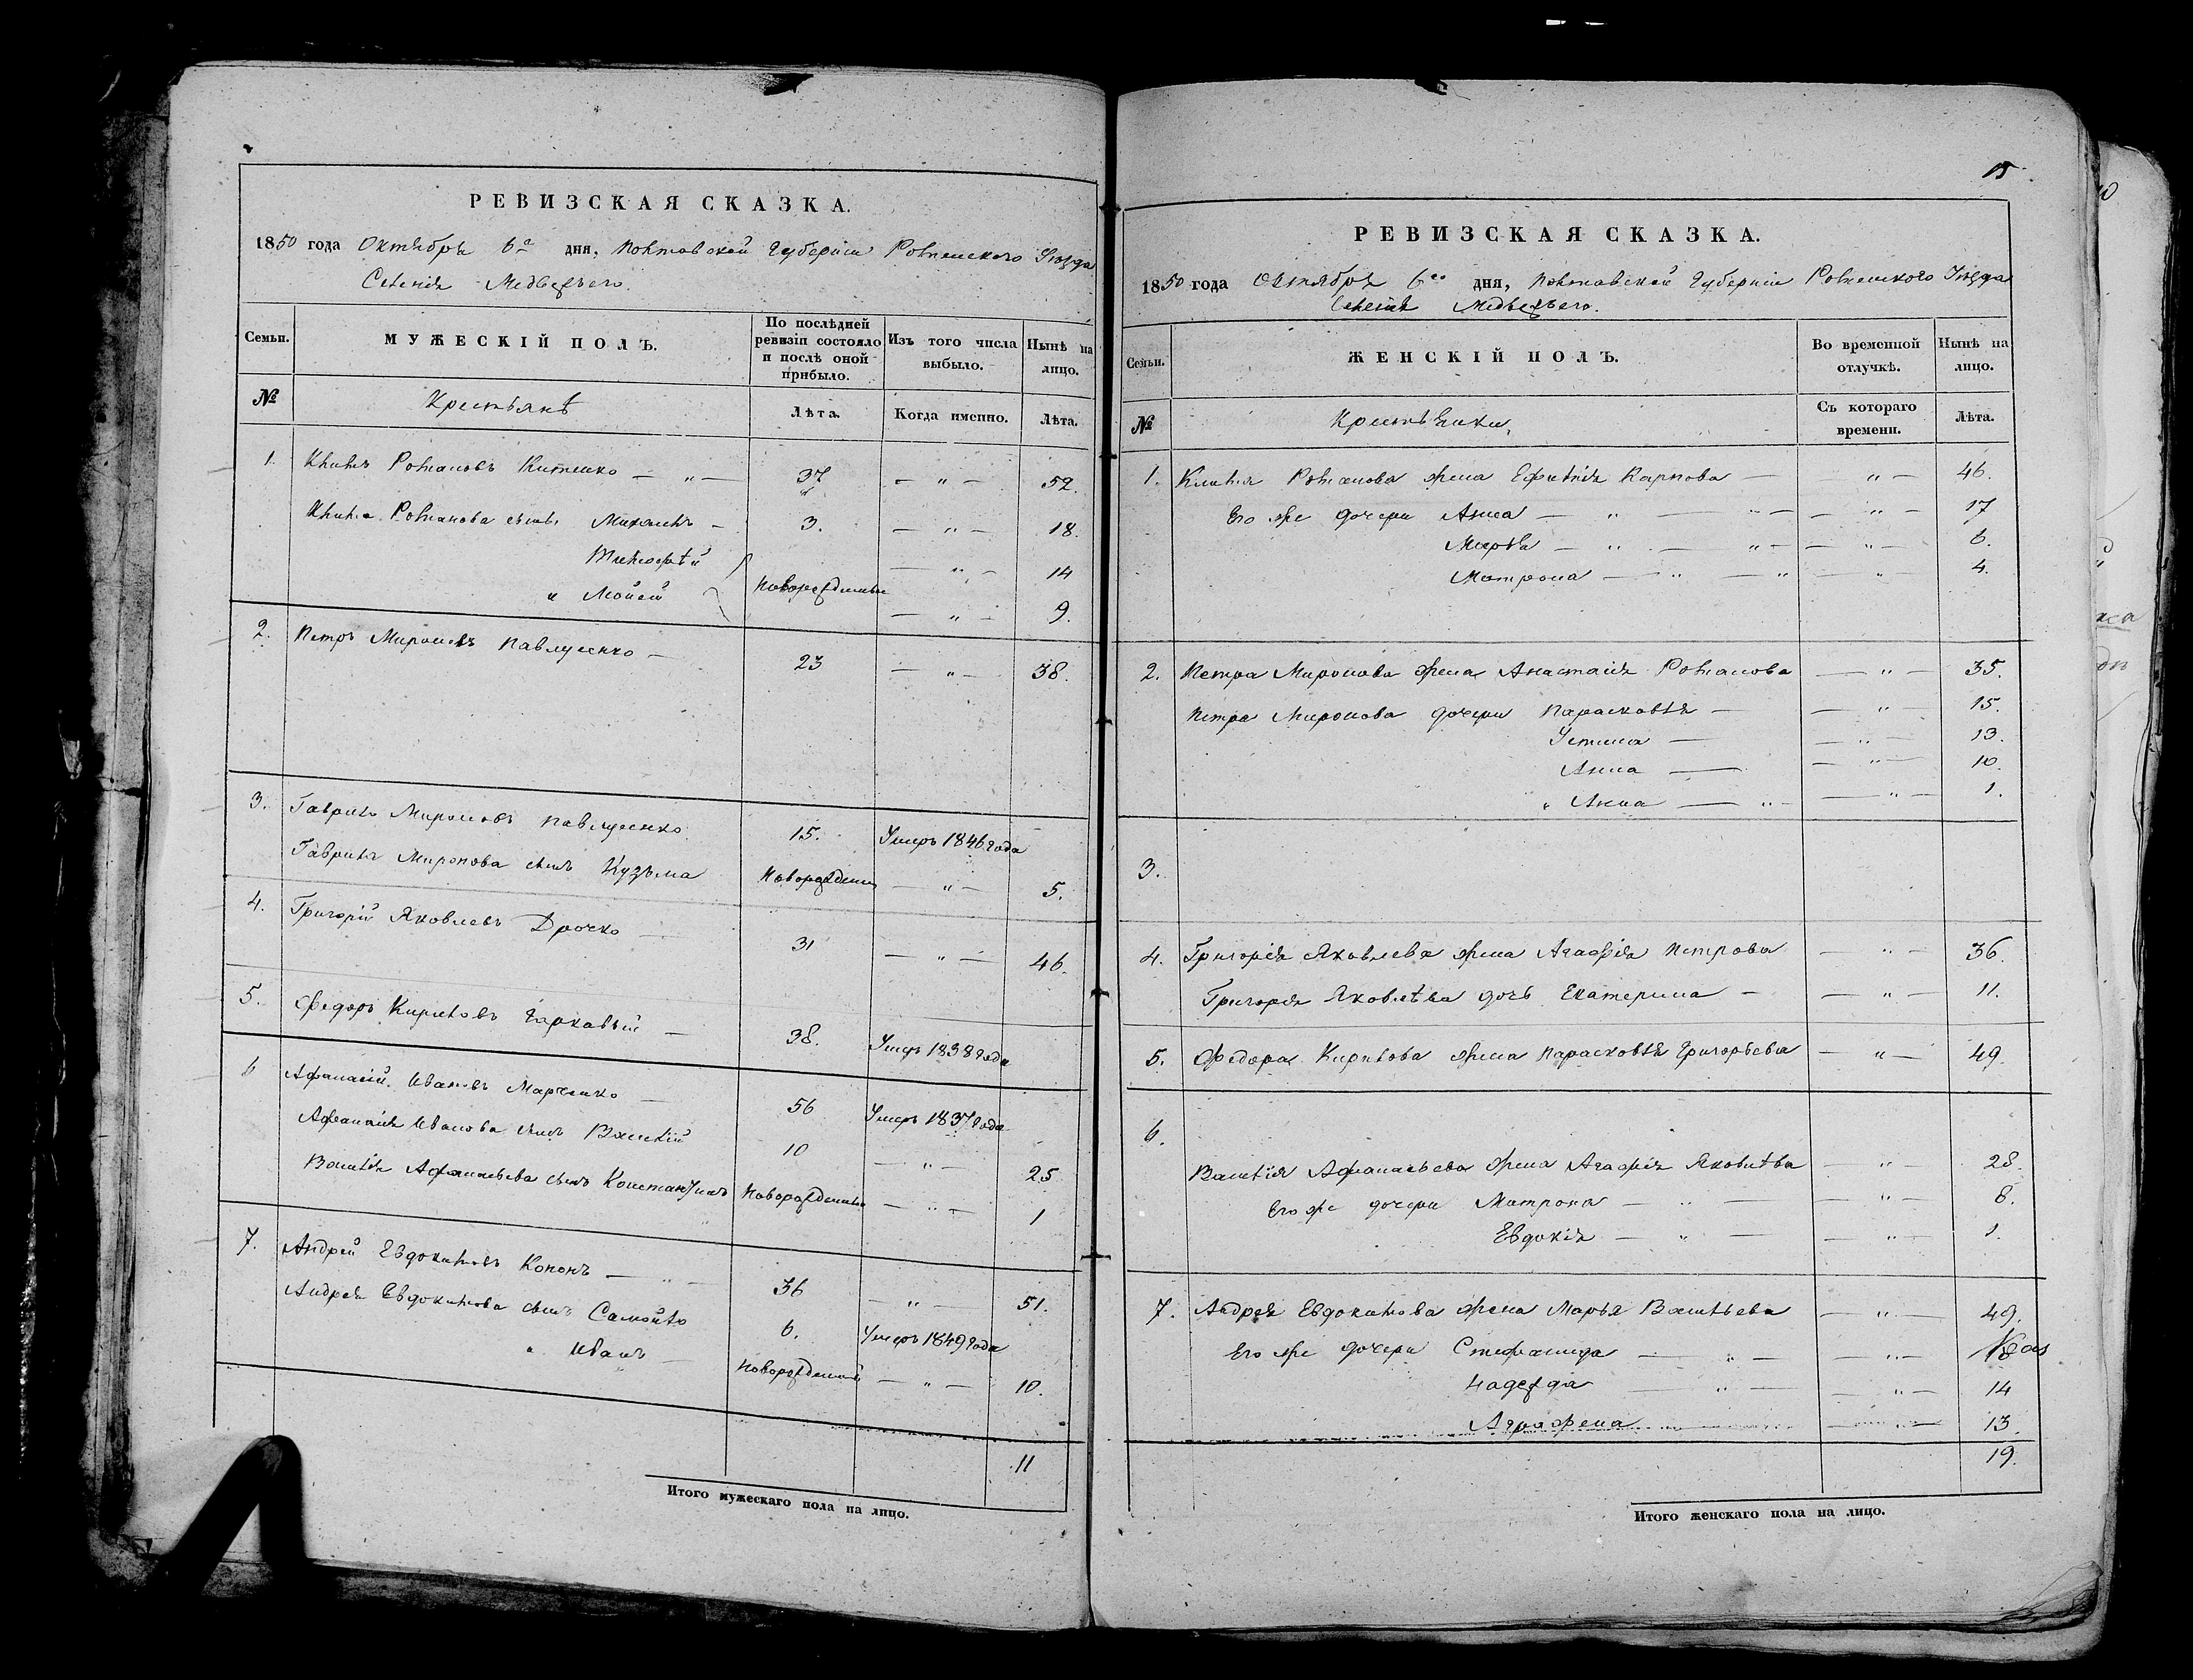 РЕВИЗСКАЯ СКАЗКА.
1850 года Октября 6го дня, Полтавской Губерніи Роменского Уѣзда
Селенія Медвежъего.
Семьи.
МУЖЕСКІЙ ПОЛЪ.
По послѣдней ревизіи состояло и послѣ оной прибыло.
Изъ того числа выбыло.
Нынѣ на лицо.
№
Крестьянѣ
Лѣта.
Когда именно.
Лѣта.
1. Климъ Романовъ Китенко — „ — 37 — „ — 52.
Клима Романова сынъ Михаилъ — 3. — „ — 18.
Тимофѣй — „ — 14
и Мойсей Новорожденные — „ — 9.
2. Петръ Мироновъ Павлусенко — 23 — „ — 38.
3. Гаврило Мироновъ Павлусенко 15. Умеръ 1846 года
Гаврила Миронова сынъ Кузьма Новорожденъ — „ — 5.
4. Григорій Яковлевъ Дрочко — 31 — „ — 46.
5. Федоръ Кириловъ Гаркавый — 38. Умеръ 1838 года
6 Афанасій Ивановъ Марченко — 56 Умеръ 1837 года
Афанасія Иванова сынъ Василій 10 — „ — 25
Василія Афанасьева сынъ Константинъ Новорожденный — „ — 1
7. Андрей Евдокимовъ Кононъ — „ — 36 — „ — 51.
Андрея Евдокимова сынъ Самойло 6. Умеръ 1849 года
„ Иванъ Новорожденный — „ — 10.
11
Итого мужескаго пола на лицо.
15
РЕВИЗСКАЯ СКАЗКА.
1850 года Октября 6го дня, Полтавской Губерніи Роменского Уѣзда
Селенія Медвежъего.
Семьи.
ЖЕНСКІЙ ПОЛЪ.
Во временной отлучкѣ.
Нынѣ на лицо.
№
Крестьянки,
Съ котораго времени.
Лѣта.
1. Клима Романова жена Ефимія Карпова — „ — 46.
Его же дочери Анна — „ — „ — — „ — 17
Марѣа — „ — „ — — „ — 6.
Матрона — „ — „ — „ 4.
2. Петра Миронова жена Анастасія Романова — „ — 35.
Петра Миронова дочери Парасковія — — „ 15.
Устина — — „ — 13.
Анна — — „ — 10.
„ Анна — „ — — „ — 1.
3.
4. Григорія Яковлева жена Агафія Петрова — „ — 36.
Григорія Яковлѣва дочь Екатерина — — „ — 11.
5. Федора Кирилова жена Парасковія Григорьева — „ — 49.
6.
Василія Афанасьева жена Агафія Яковлѣва — „ — 28.
Его же дочери Матрона — „ — „ — 8.
Евдокія — „ — — „ — 1.
7. Андрея Евдокимова жена Марья Васильева — „ — 49.
Его же дочери Стефанида — „ — — „ — 18
Надежда — „ — — „ — 14
Аграфена — „ — 13.
19.
Итого женскаго пола на лицо.